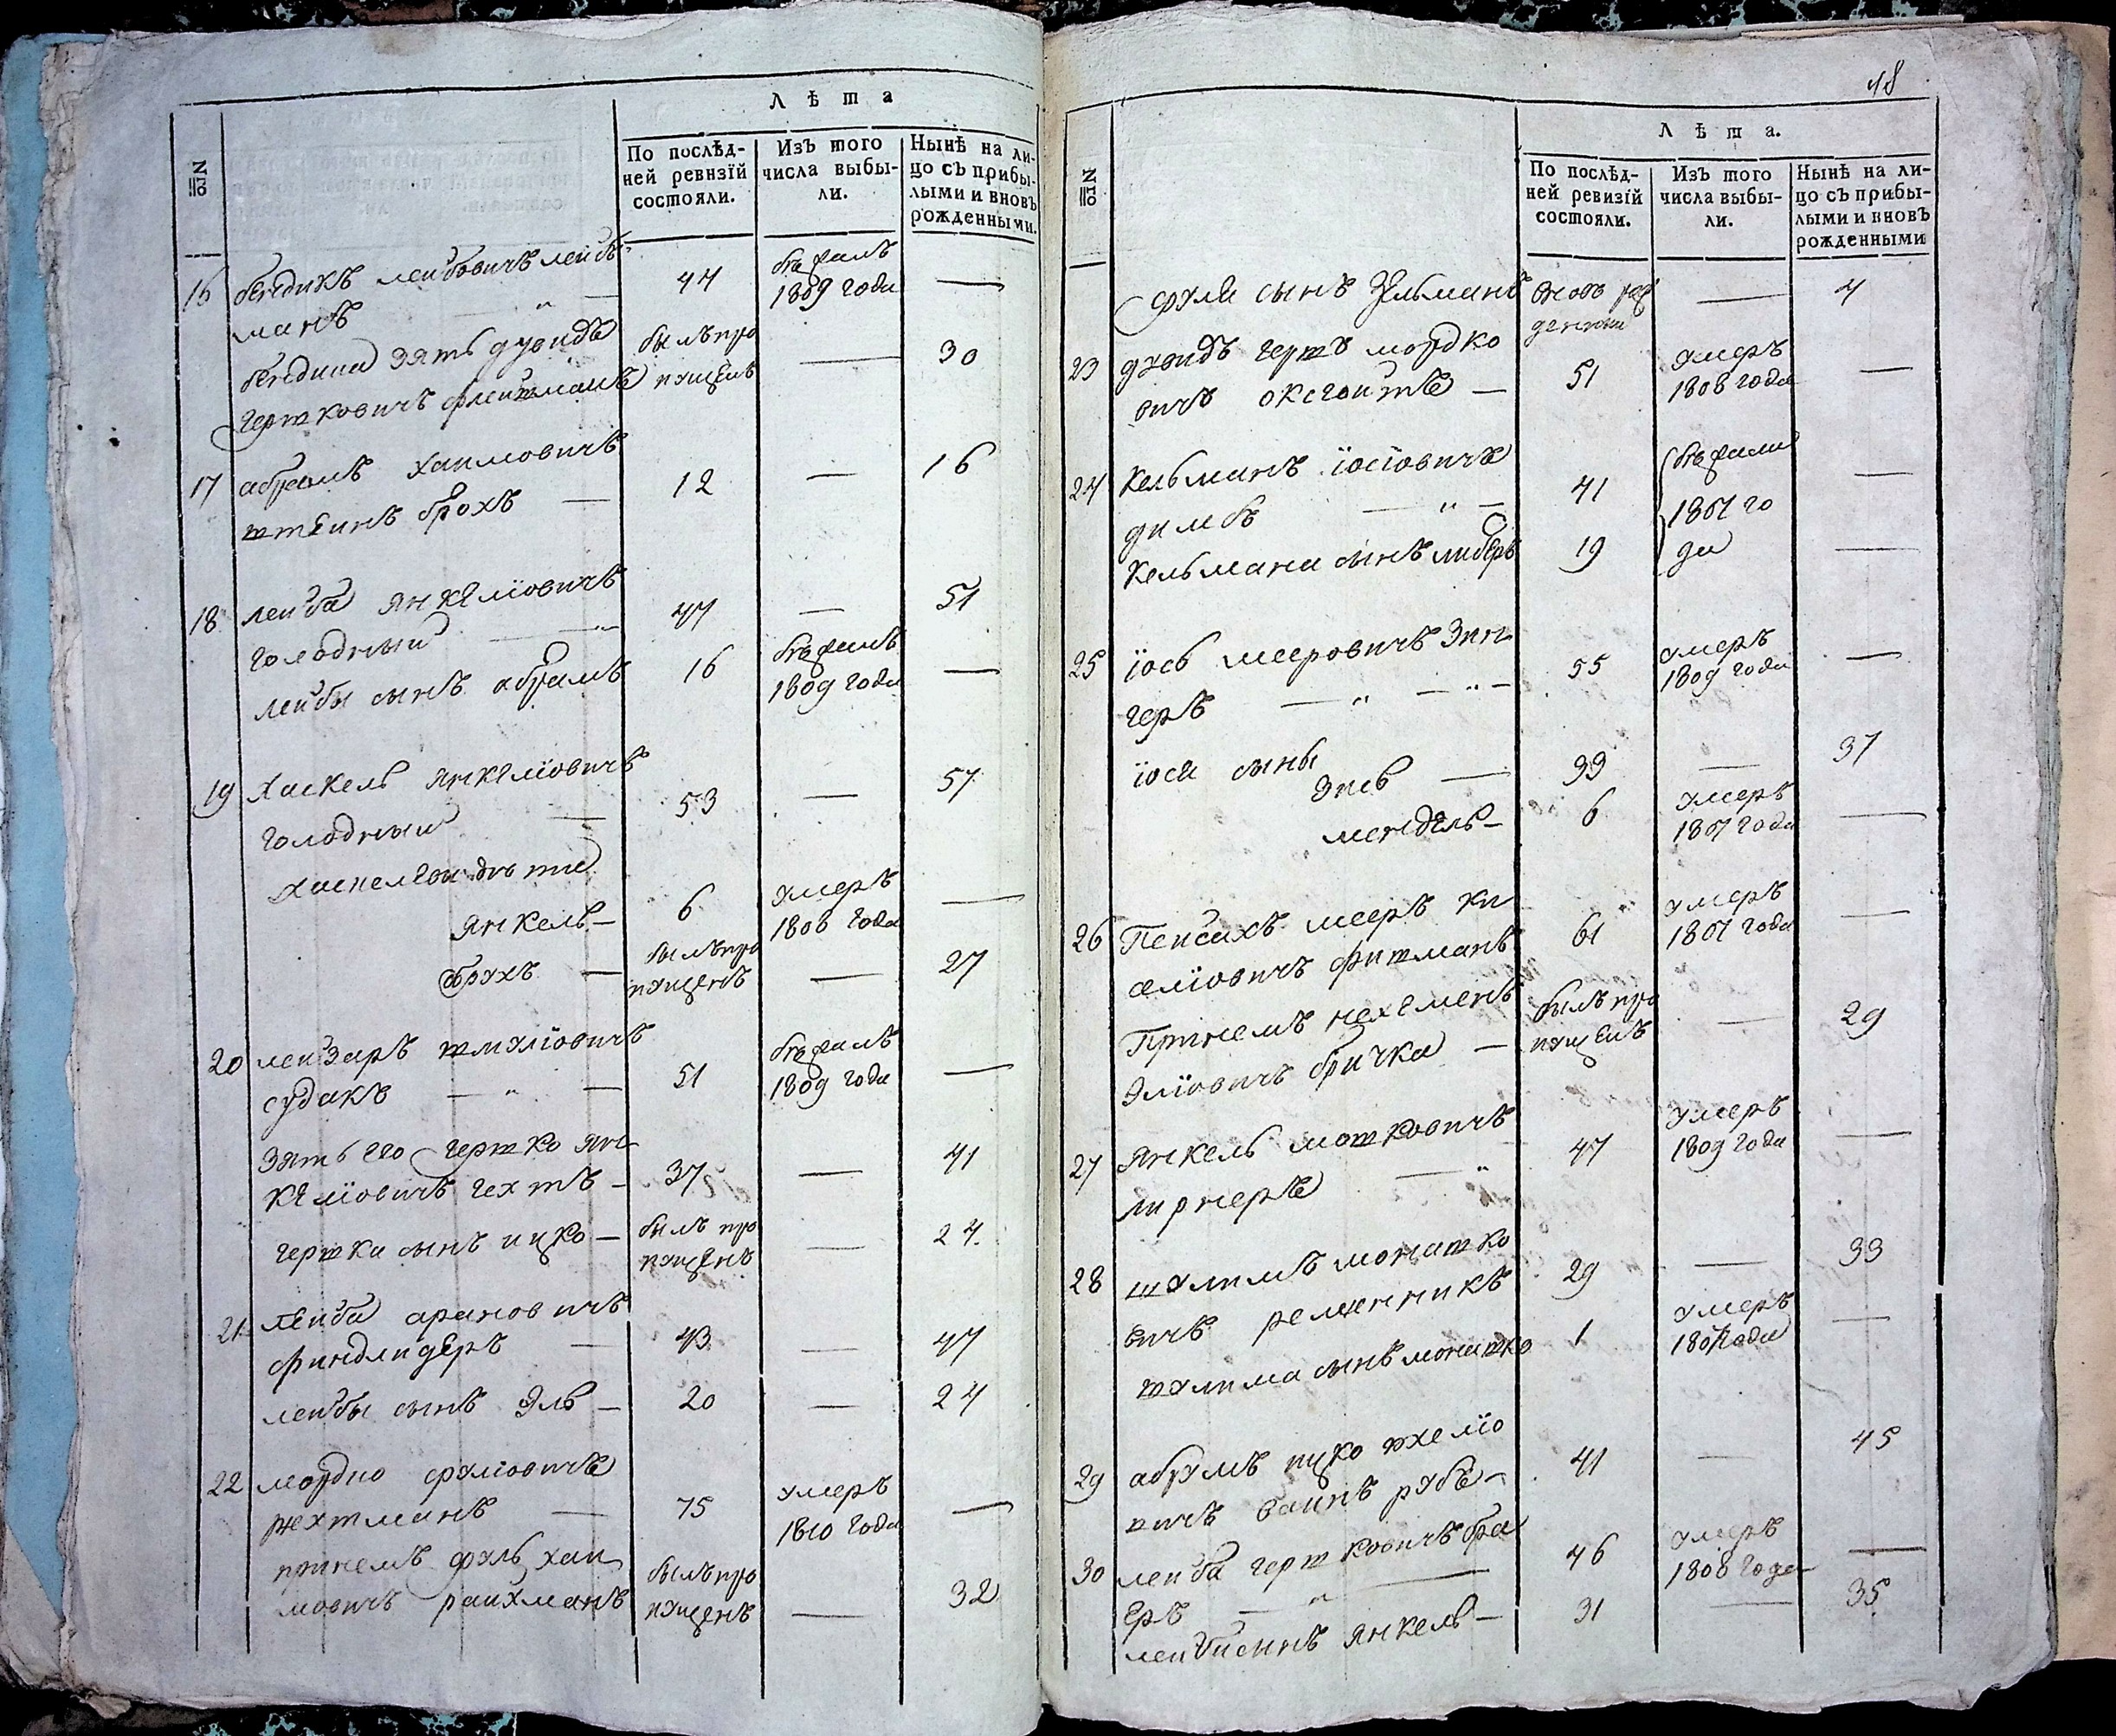 Лѣта
№
По послѣд-
ней ревизїй
состояли.
Изъ того
числа выбы-
ли.
Нынѣ на ли-
цо съ прибы-
лыми и вновь
рожденными.
16 бендикъ леибовичъ леиб
манъ — 44 бѣжалъ 1809 года —
бендика зять дувидъ
гершковичъ флеишманъ былъ пропущенъ — 30
17 абрамъ хаимовичъ
штеинъ брохъ — 12 — 16
18 леиба янкелїовичъ
голодныи — 47 — 51
леибы сынъ абрамъ 16 бѣжалъ 1809 года —
19 хаскель янкелїовичъ
голодныи — 53 — 57
дѣти
янкель — 6 умеръ 1808 года —
брухъ — былъ пропущенъ — 27
20 леизаръ шмулїовичъ
судакъ — 51 бѣжалъ 1809 года —
зять его гершко ян
келїовичъ гехтъ — 37 — 41
гершка сынъ ицко — былъ пропущенъ — 24
21 леиба арановичъ
финдлидеръ — 43 — 47
леибы сынъ эль — 20 — 24
22 мордко фулїовичъ
рехтманъ — 75 умеръ 1810 года —
приемъ фуль хаи
мовичъ раихманъ былъ пропущенъ — 32
48
Лѣта.
№
По послѣд-
ней ревизїй
состояли.
Изъ того
числа выбы-
ли.
Нынѣ на ли-
цо съ прибы-
лыми и вновь
рожденными
фуля сынъ зельманъ вновь рож денныи — 4
23 дувидъ гершъ мордко
вичъ оксгоитъ — 51 умеръ 1808 года —
24 кельманъ їосїовичъ
димбъ — 41 бѣжали —
кельмана сынъ либеръ 19 1807 года —
25 їось мееровичъ зин
геръ — 55 умеръ 1809 года —
їося сыны
зись — 33 — 37
мендель — 6 умеръ 1807 года —
26 Пеисахъ мееръ ки
селїовичъ фитманъ 61 умеръ 1807 года —
Приемъ нехеменъ
элїовичъ бричка — былъ пропущенъ — 29
27 янкель мошковичъ
лирнеръ — 47 умеръ 1809 года —
28 шулимъ монашко
вичъ ременникъ 29 — 33
шулима сынъ монашко 1 умеръ 1807 года —
29 абрумъ ицко
вичъ ваинъ рубъ — 41 — 45
30 леиба гершковичъ бра
еръ — 46 умеръ 1808 года —
леибы сынъ янкель — 31 — 35